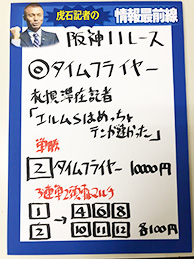 虎石記者の
情報最前線
阪神11レース
◎タイムフライヤー
札幌滞在記者
「エルムSはめっちゃ
テンが遅かった」
単勝
2 タイムフライヤー 10000円
3連単2頭軸マルチ
1 → 4 6 8
2 10 11 12 各100円